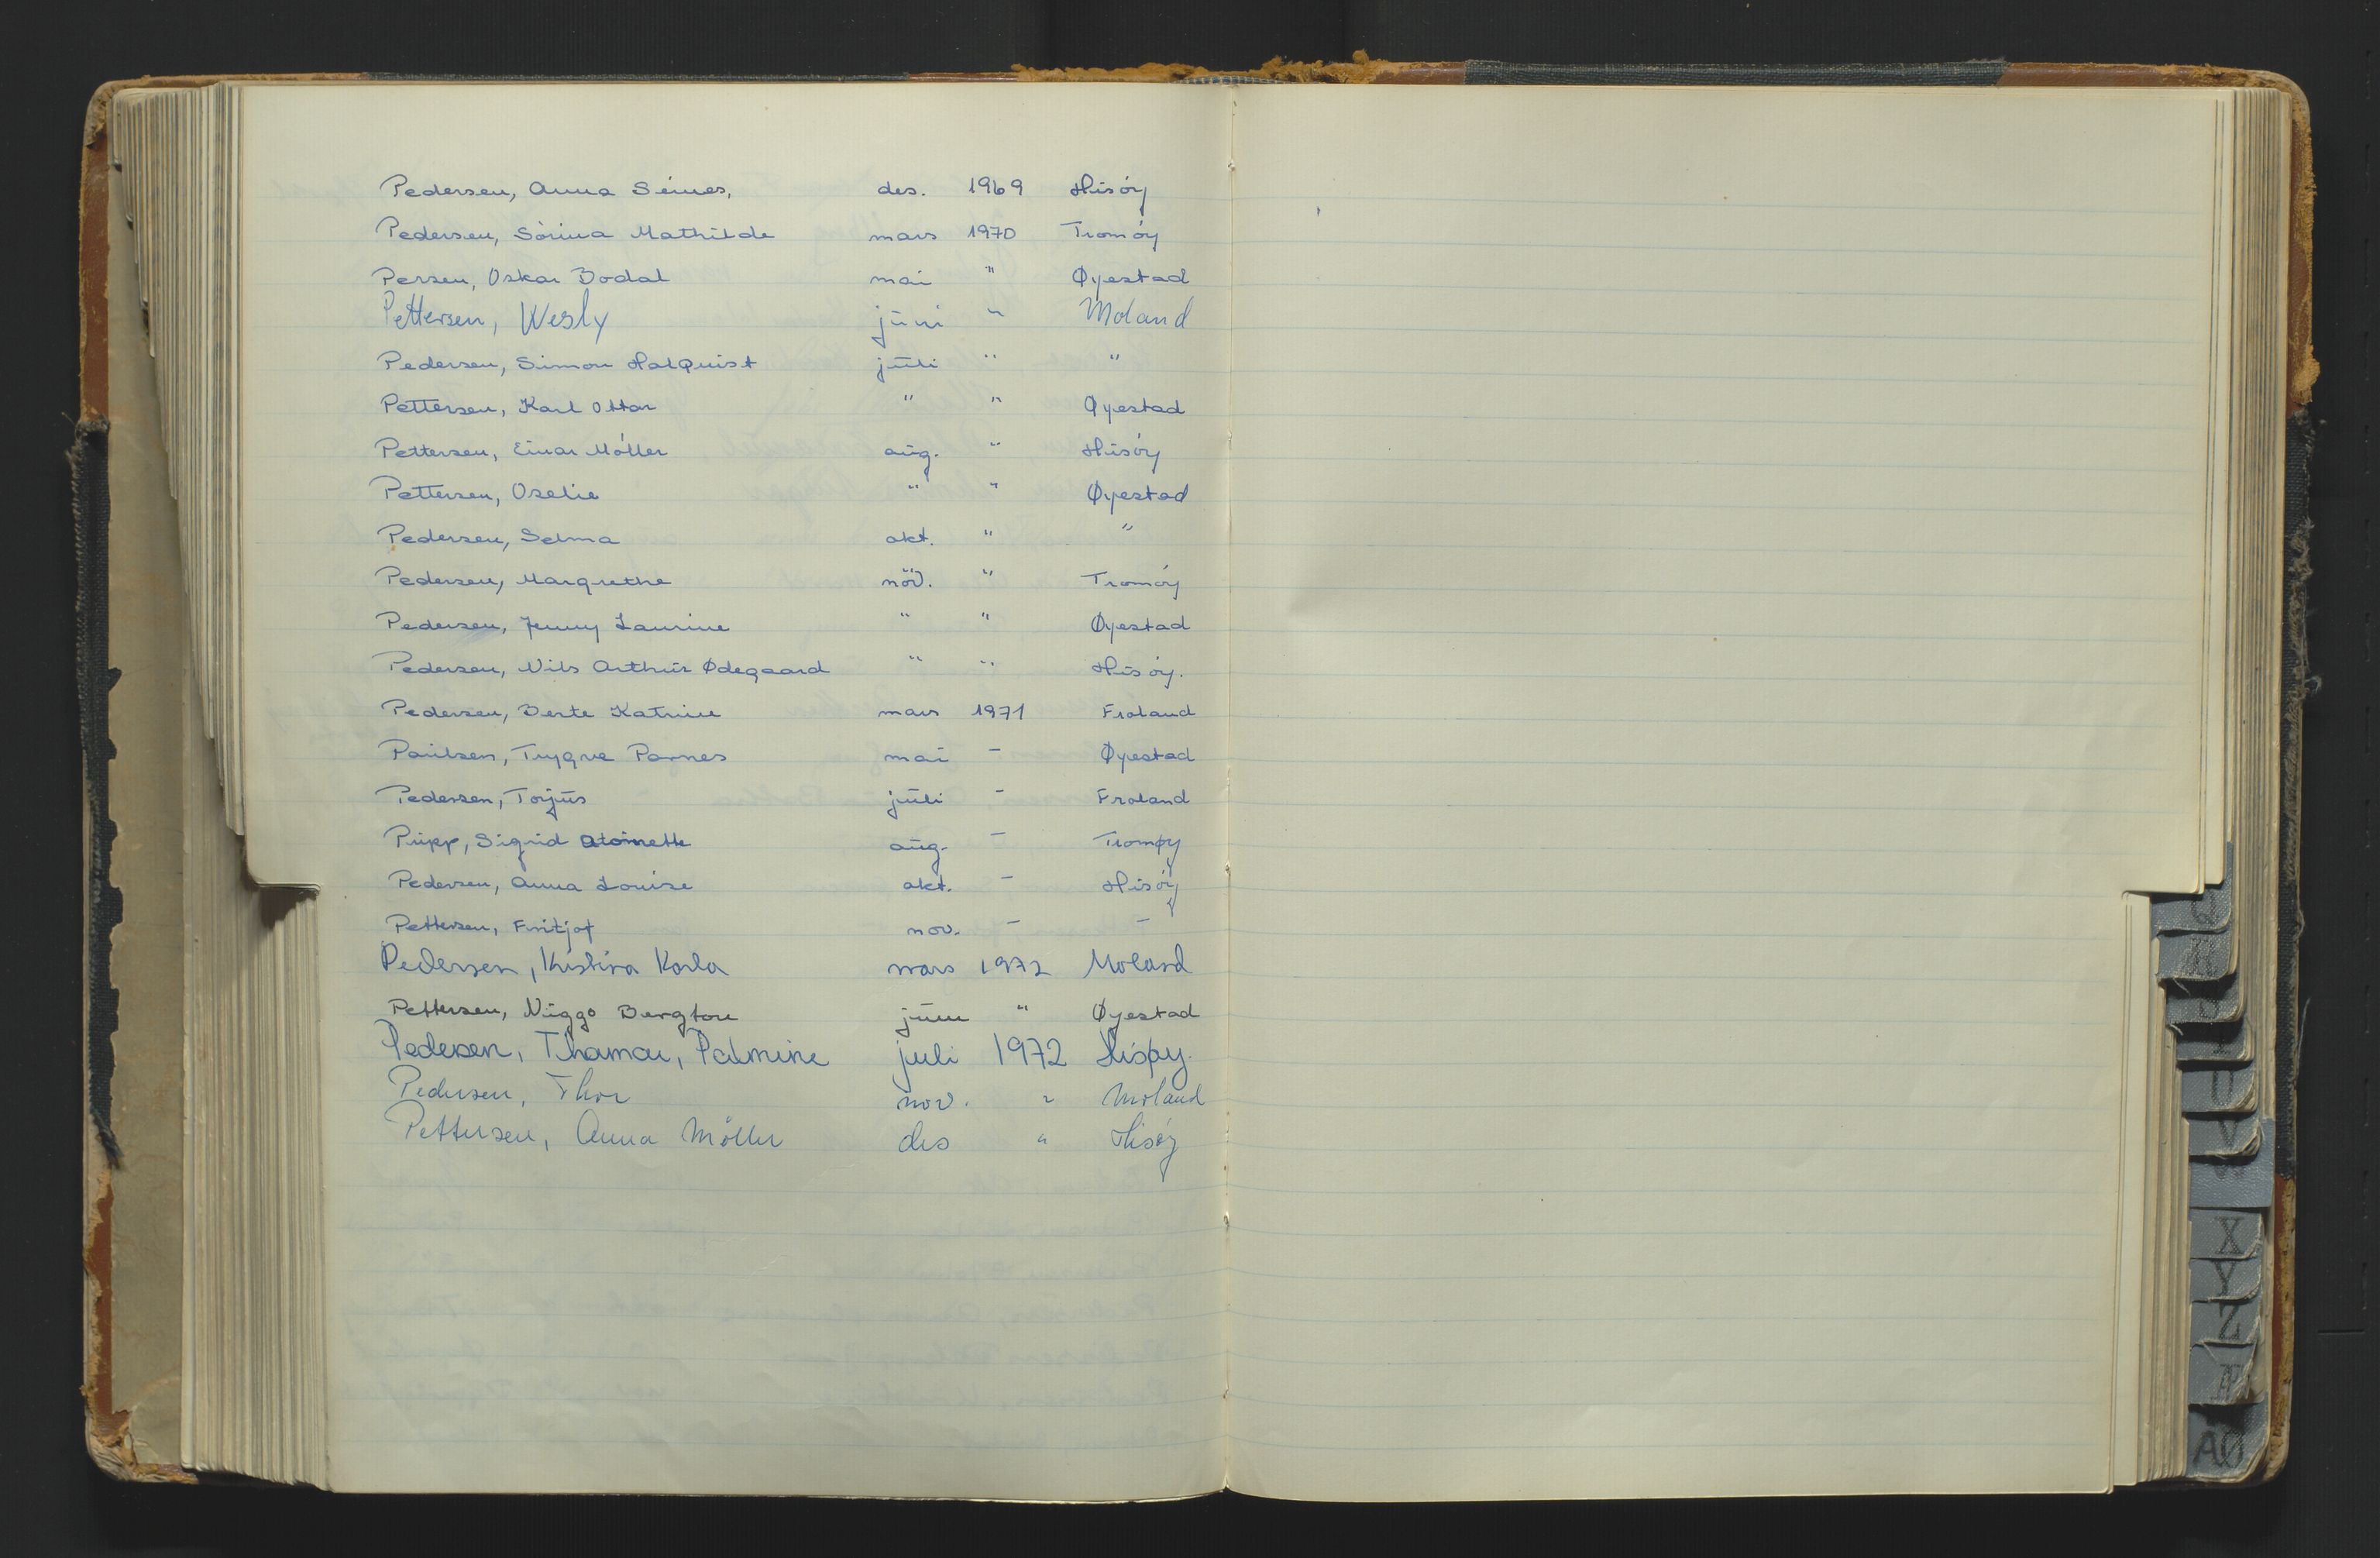 Pedersen, Anna Seines, des. 1969 Hisøy
Pedersen, Sörina Mathilde mars 1970 Tromöy
Persen, Oskar Bodal mai " Øyestad
Pettersen, Wesly juni " Moland
Pedersen, Simon HalQuist juli " "
Pettersen, Karl Ottar " " Øyestad
Pettersen, Einar Möller aug. " Hisöy
Pettersen, Oselie " " Øyestad
Pedersen, Selma okt. " "
Pedersen, Margrethe nov. " Tromöy
Pedersen, Jenny Laurine " " Øyestad
Pedersen, Nils Arthur Ødegaard " " Hisöy.
Pedersen, Berte Katrine mars 1971 Froland
Paulsen, Trygve Parnes mai - Øyestad
Pedersen, Torjus juli - Froland
Pupp, Sigrid Atoinette aug. - Tromøy
Pedersen, Anna Louise okt. - Hisöy
Pettersen, Fritjof nov. - -
Pedersen, Kristina Karla mars 1972 Moland
Pettersen, Viggo Bergton juni " Øyestad
Pedersen, Thamar, Palmine juli 1972 Hisøy.
Pedersen, Thor nov. " Moland
Pettersen, Anna Möller des " Hisøy
Q
R
S
T
U
V
W
X
Y
Z
Æ
AØ